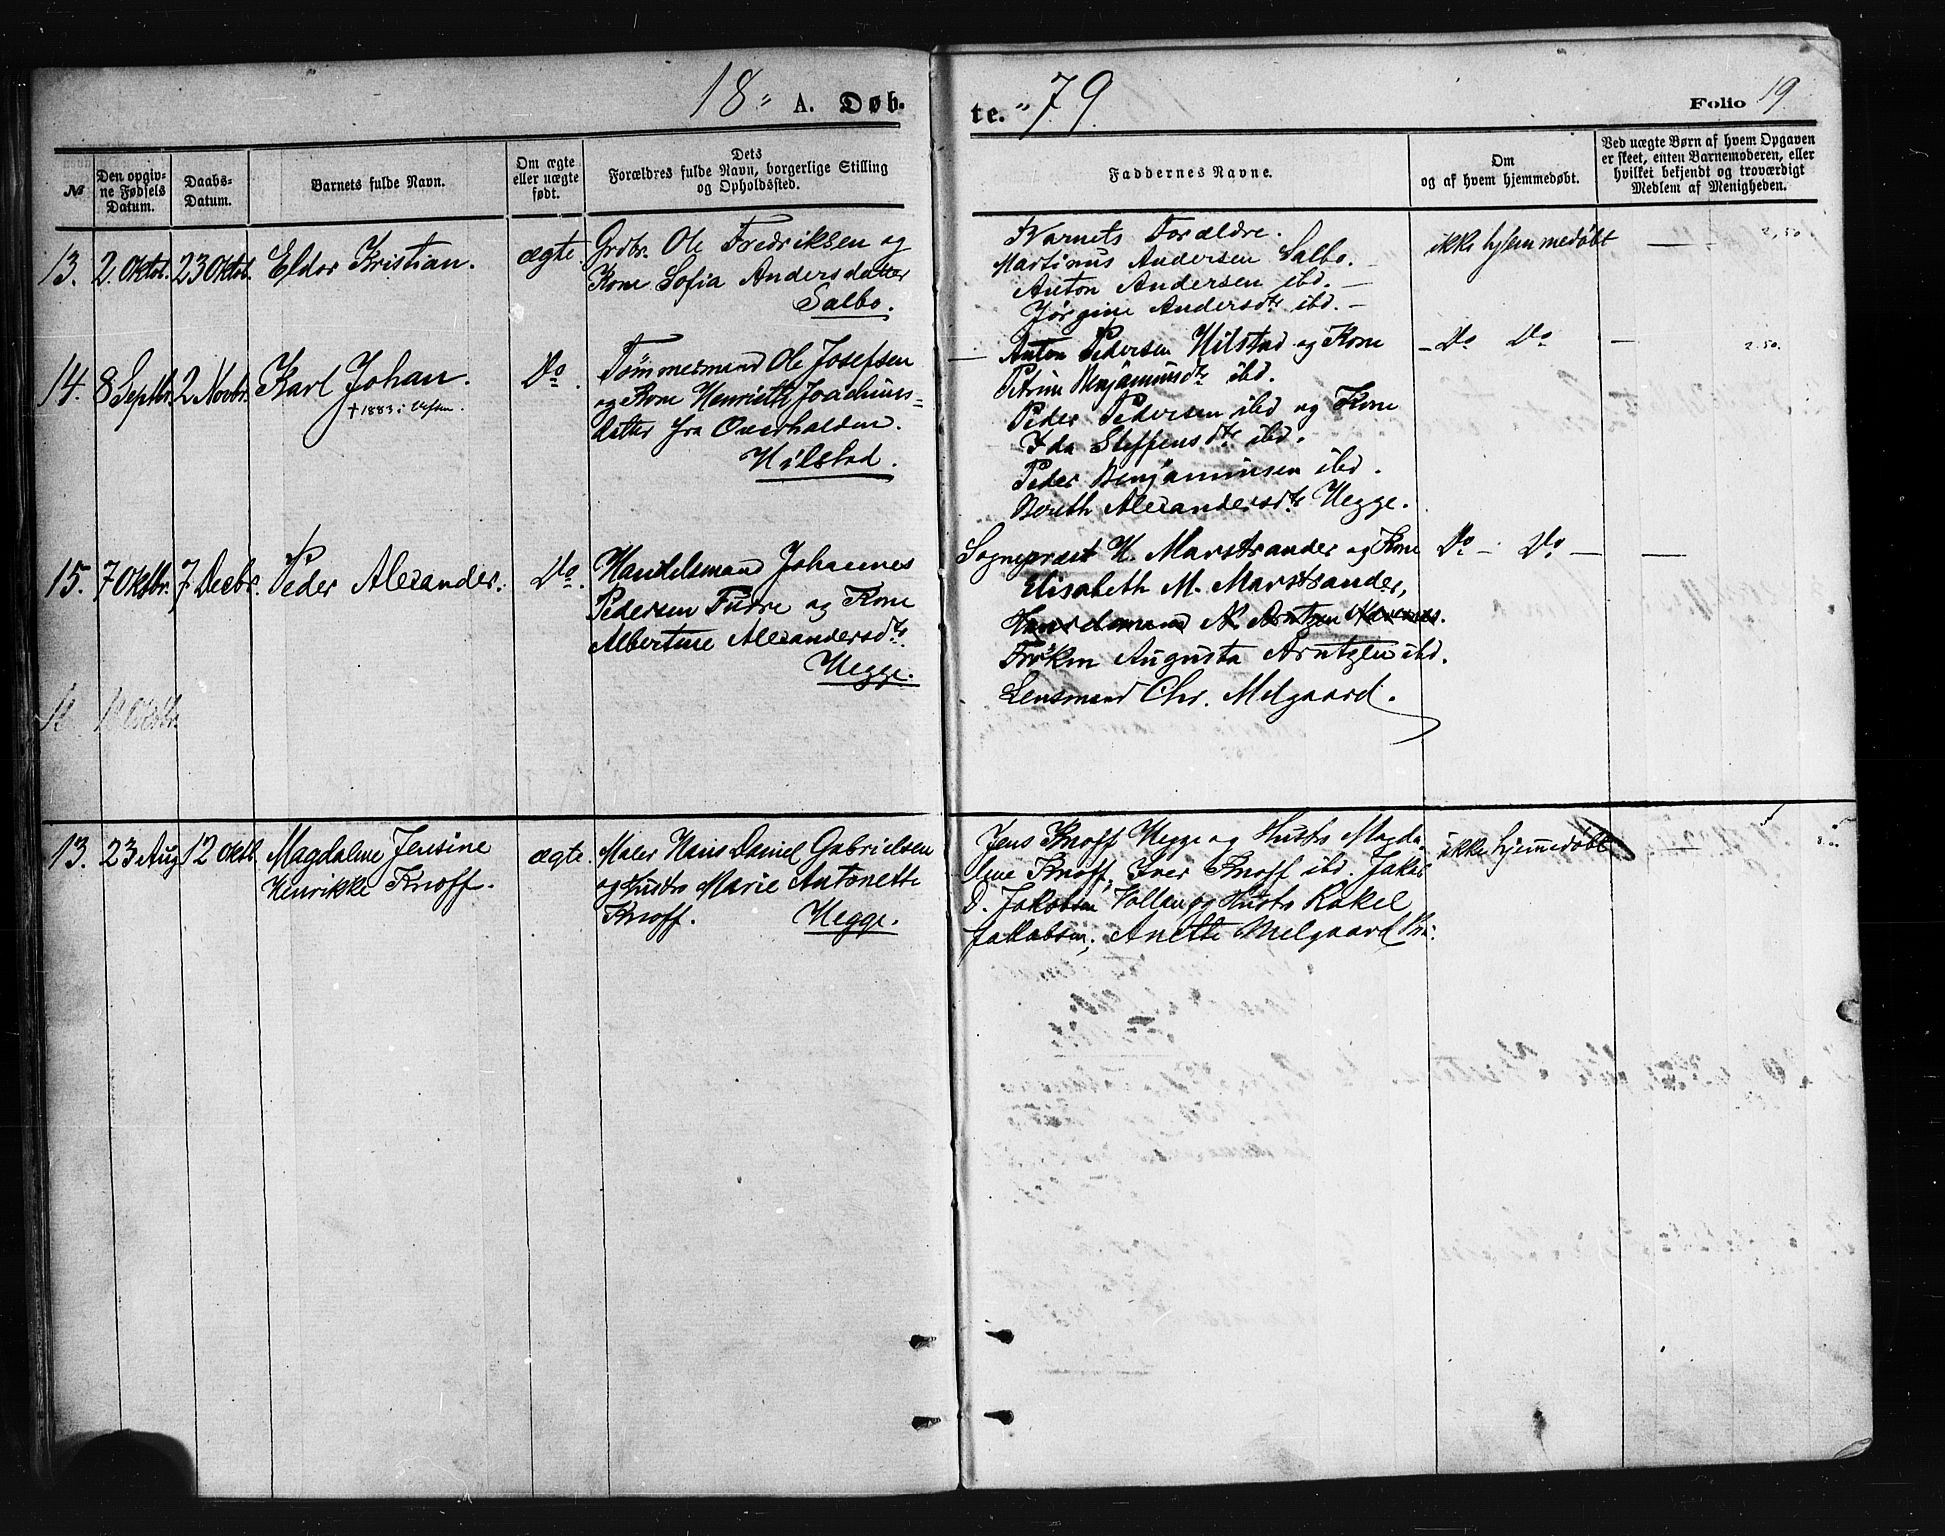 18" A. Døb-
te. "79.
Folio 19
№
Den opgiv-
ne Fødsels
Datum.
Daabs-
Datum.
Barnets fulde Navn.
Om ægte
eller uægte
født.
Dets
Forældres fulde Navn, borgerlige Stilling
og Opholdssted.
Faddernes Navne.
Om
og af hvem hjemmedøbt.
Ved uægte Børn af hvem Opgaven
er skeet, enten Barnemoderen, eller
hvilket bekjendt og troværdigt
Medlem af Menigheden.
13. 2. Oktbr. 23 Oktbr. Eldor Kristian. ægte.
Grdbr. Ole Fredriksen og
Kone Sofia Andersdatter
Salbo.
Barnets Forældre.
Martinus Andersen Salbo. –
Anton Andersen ibd. –
Jørgine Andersdtr ibd. –
ikke hjemmedøbt — 2,50
14. 8 Septbr. 2 Novbr. Karl Johan. Do.
† 1883
Tømmermand Ole Josefsen
og Kone Henrieth Joachims=
datter fra Overhalden.
Hilstad.
Anton Pedersen Hilstad og Kone
Petrine Benjaminsdtr ibd.
Peder Pedersen ibd og Kone
Ida Steffensdtr ibd.
Peder Benjaminsen ibd.
Bereth Alexandersdtr Hegge.
– Do Do — 2.50.
15. 7 Oktbr. 7 Decbr. Peder Alexander. Do.
Handelsmand Johannes
Pedersen Furre og Kone
Albertine Alexandersdtr.
Hegge.
Sognepræst H. Marstrander og Kone
Elisabeth M. Marstrander,
Handelsmand N. Arntzen
Frøken Augusta Arntzen ibd.
Lensmand Chr. Melgaard.
Do – Do — —
13. 23 Aug 12 Oktb. Magdalene Jensine
Henrikke Knoff.
ægte.
Maler Hans Daniel Gabrielsen
og Hustro Marie Antonette
Knoff. Hegge.
Jens Knoff Hegge og Hustro Magda-
lene Knoff, Iver Knoff ibd. Jakob
D. Jakobsen Vollan og Hustro Rakel
Jakobsen, Anette Melgaard
ikke hjemmedøbt —